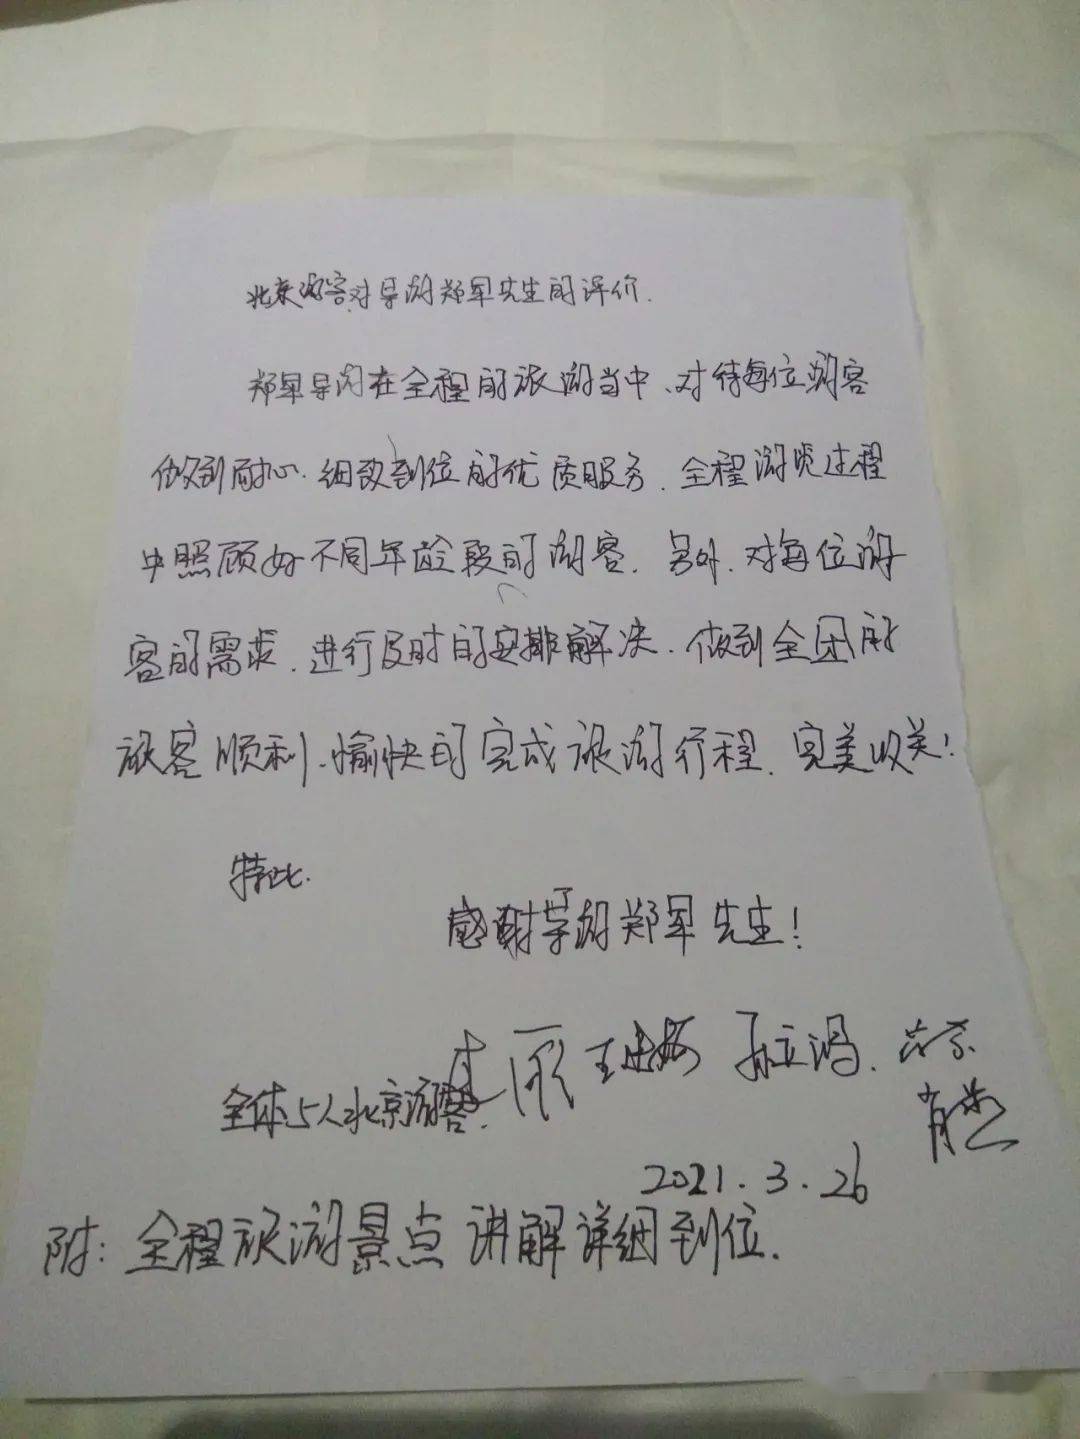 北京游客对导游郑军先生的评价.
郑军导游在全程的旅游当中、对待每位游客
做到耐心.细致到位的优质服务.全程游览过程
中照顾好不同年龄段的游客.另外.对每位游
客的需求.进行及时的安排解决.做到全团的
旅客顺利.愉快的完成旅游行程.完美收关!
特此.
感谢导游郑军先生!
王建梅 孙立鸿.
全体5人北京游客.
2021.3.26
附:全程旅游景点讲解详细到位.